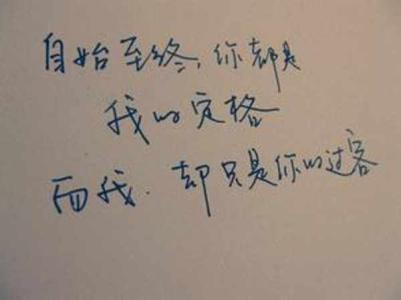 自始至终,你都是
我的定格
而我.却只是你的过客